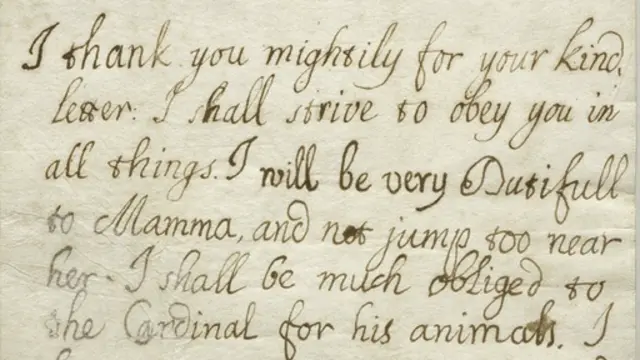 I thank you mightily for your kind
letter: I shall strive to obey you in
all things. I will be very Dutifull
to Mamma, and not jump too near
her. I shall be much obliged to
the Cardinal for his animals. I